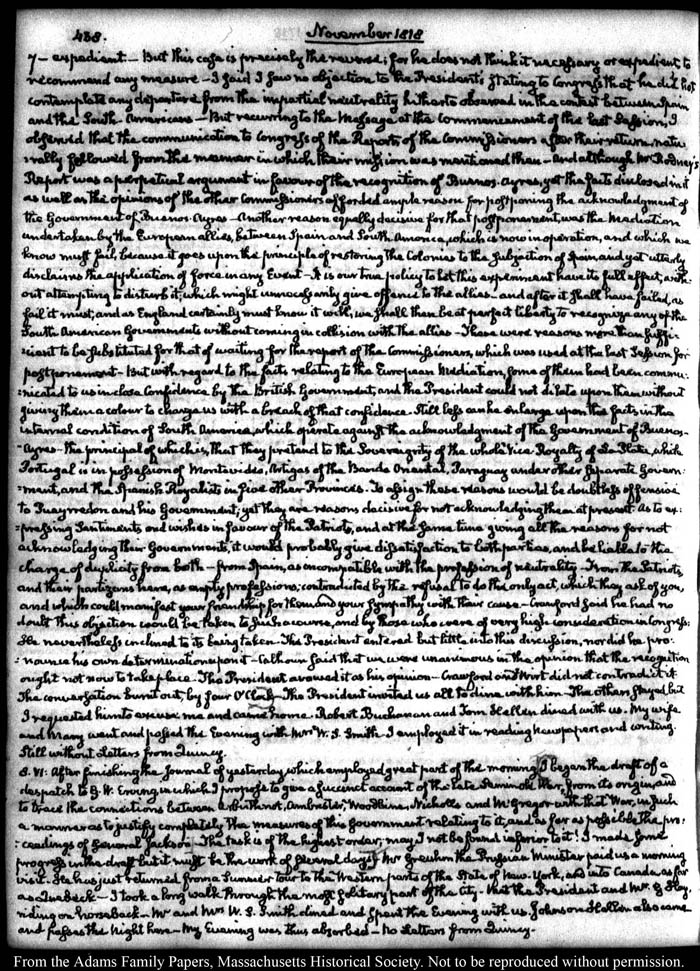 438.
November 1818
7 — expedient. — But this case is precisely the reverse; for he does not think it necessary or expedient, to
recommend any measure — I said I saw no objection to the President's stating to Congress that he did not
contemplate any departure from the impartial neutrality hitherto observed in the contest between Spain
and the South-Americans — But recurring to the Message at the Commencement of the last Session, I
observed that the communication to Congress of the Reports of the Commissioners after their return, natu-
-rally followed from the manner in which their mission was mentioned then — And although Mr Rodney's
Report was a perpetual argument in favour of the recognition of Buenos-Ayres, yet the facts disclosed in it
as well as the opinions of the other Commissioners afforded ample reason for postponing the acknowledgment of
the Government of Buenos-Ayres — Another reason equally decisive for that postponement, was the Mediation
undertaken by the European allies, between Spain and South-America, which is now in operation, and which we
know must fail, because it goes upon the principle of restoring the Colonies to the Subjection of Spain, and yet utterly
disclaims the application of force in any Event — It is our true policy to let this experiment have its full effect, with-
out attempting to disturb it, which might unnecessarily give offence to the allies — and after it shall have failed, as
fail it must, and as England certainly must know it will, we shall then be at perfect liberty to recognize any of the
South American Governments without coming in collision with the allies — These were reasons more than suffi-
-cient to be substituted for that of waiting for the report of the Commissioners, which was used at the last Session for
postponement — But with regard to the facts relating to the European Mediation, some of them had been commu-
-nicated to us in close Confidence by the British Government, and the President could not dilate upon them without
giving them a colour to charge us with a breach of that confidence. Still less can he enlarge upon the facts in the
internal condition of South America, which operate against the acknowledgment of the Government of Buenos-
Ayres — the principal of which is, that they pretend to the Sovereignty of the whole Vice Royalty of La Plata, while
Portugal is in possession of Montevideo, Artigas of the Banda Oriental, Paraguay under other separate Govern-
-ment, and the Spanish Royalists in five other Provinces. To assign these reasons would be doubtless offensive
to Pueyrredon and his Government; yet they are reasons decisive for not acknowledging them at present. As to ex-
-pressing Sentiments and wishes in favour of the Patriots, and at the same time giving all the reasons for not
acknowledging their Governments, it would probably give dissatisfaction to both parties, and be liable to the
charge of duplicity from both — from Spain, as incompatible with the profession of neutrality — From the Patriots,
and their partizans here, as empty professions, contradicted by the refusal to do the only act, which they ask of you,
and which could manifest your friendship for them and your Sympathy with their cause — Crawford said he had no
doubt this objection would be taken to such a course, and by those who were of very high consideration in Congress:
He nevertheless inclined to its being taken — The President entered but little into this discussion, nor did he pro-
-nounce his own determination upon it — Calhoun said that we were unanimous in the opinion that the recognition
ought not now to take place. The President avowed it as his opinion — Crawford and Wirt did not contradict it
The conversation burnt out, by four O'Clock — The President invited us all to dine with him — The others stayed but
I requested him to excuse me and came home. Robert Buchanan and Tom Hellen dined with us. My wife
and Mary went and passed the Evening with Mrs W. S. Smith I employed it in reading Newspapers and writing.
Still without Letters from Quincy.
8. VI: After finishing the Journal of yesterday which employed great part of the morning, I began the draft of a
despatch to G. W. Erving, in which I propose to give a succinct account of the late Seminole War, from its origin, and
to trace the connections between Arbuthnot, Ambrister, Woodbine, Nicholls and McGregor with that War, in such
a manner as to justify completely the measures of this Government relating to it, and as far as possible the pro-
-ceedings of General Jackson — The task is of the highest order; may I not be found inferior to it! I made some
progress in the draft but it must be the work of several days. Mr Greuhm the Prussian Minister paid us a morning
visit. He has just returned from a Summer tour to the Western parts of the State of New-York, and into Canada, as far
as Quebeck — I took a long walk through the most solitary part of the city — Met the President and Mr G Hay,
riding on horseback — Mr and Mrs W. S. Smith dined and spent the Evening with us. Johnson Hellen also came
and passes the Night here — My Evening was thus absorbed — No Letters from Quincy.
From the Adams Family Papers, Massachusetts Historical Society. Not to be reproduced without permission.